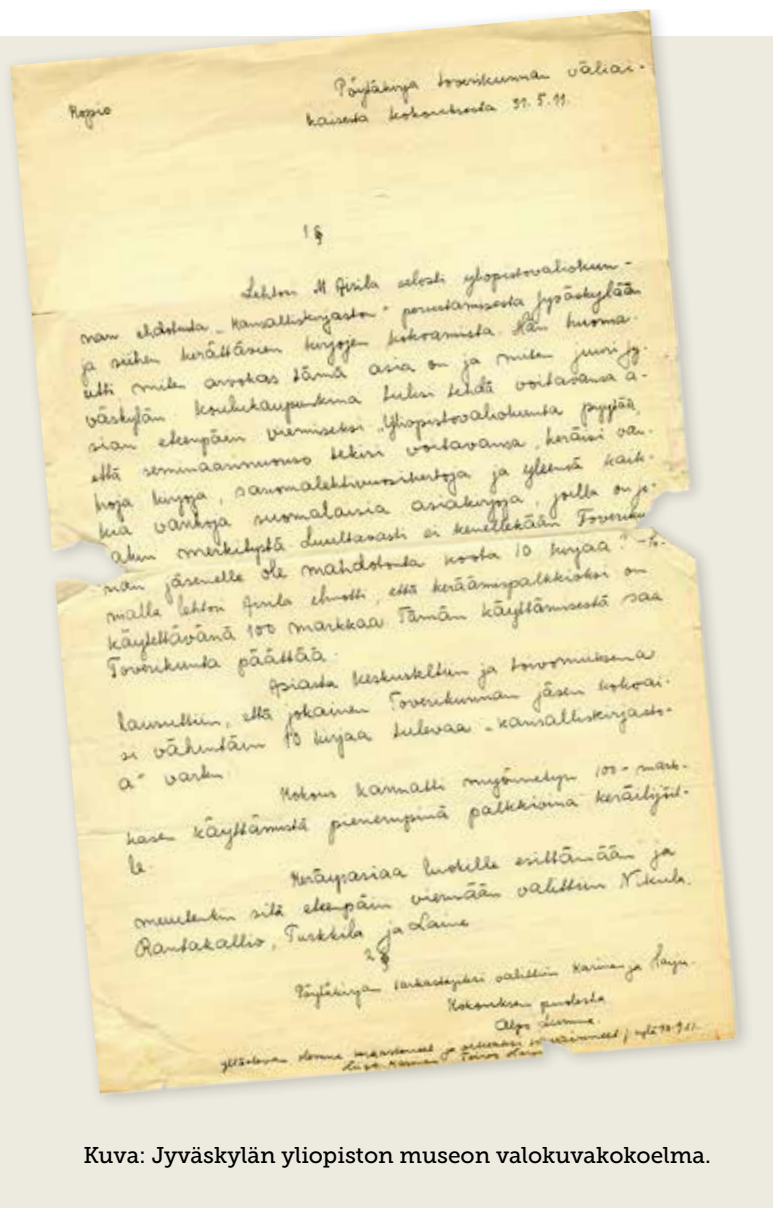 Kopio
Pöytäkirja toverikunnan väliai-
kaisesta kokouksesta 31.5.11.
1 §
Lehtori M Airila selosti yliopistovaliokun-
nan ehdotusta "kansalliskirjaston" perustamisesta Jyväskylään
ja siihen kerättävien kirjojen kokoamista. Hän huoma-
utti miten arvokas tämä asia on ja miten juuri Jy-
väskylän koulukaupunkina tulisi tehdä voitavansa a-
sian eteenpäin viemiseksi. Yliopistovaliokunta pyytää,
että seminaarinuoriso tekisi voitavansa, keräisi van-
hoja kirjoja, sanomalehtivuosikertoja ja yleensä kaik-
kia vanhoja suomalaisia asiakirjoja, joilla on jo-
takin merkitystä. Luultavasti ei kenellekään Toveriku
nan jäsenelle ole mahdotonta koota 10 kirjaa? –
malle lehtori Airila ilmotti, että keräämispalkkioksi on
käytettävänä 100 markkaa. Tämän käyttämisestä saa
Toverikunta päättää.
Asiasta keskusteltiin ja toivomuksena
lausuttiin, että jokainen Toverikunnan jäsen kokoai-
si vähintäin 10 kirjaa tulevaa "kansalliskirjasto-
a" varten.
Kokous kannatti myönnetyn 100-mark-
kasen käyttämistä pienempinä palkkioina keräilijöil-
le.
Keräysasiaa luokille esittämään ja
muutenkin sitä eteenpäin viemään valittiin Nikula,
Rantakallio, Turkkila ja Laine
2 §
Pöytäkirjan tarkastajiksi valittiin Karinen ja Harju.
Kokouksen puolesta
Olga
tarkastaneet ja